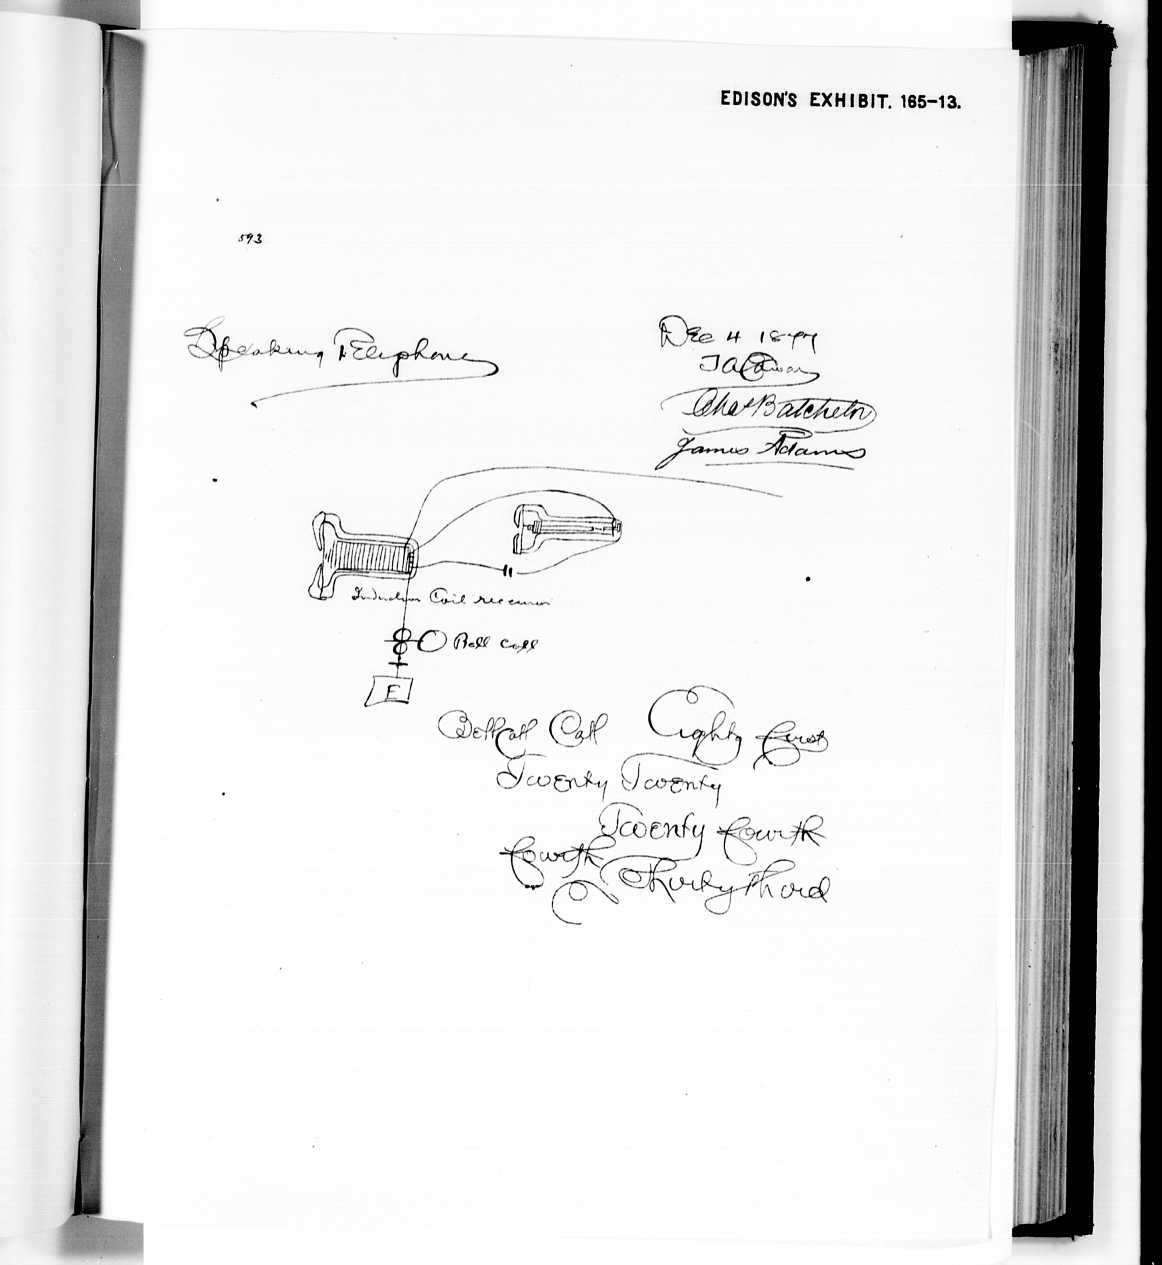 EDISON'S EXHIBIT. 165-13.
593
Speaking Telephone
Dec 4 1877
T A Edison
Chas Batchelor
James Adams
Induction Coil receiver
Bell call
E
Bell Call Call Eighty first
Twenty Twenty
Twenty fourth
fourth Thirty third